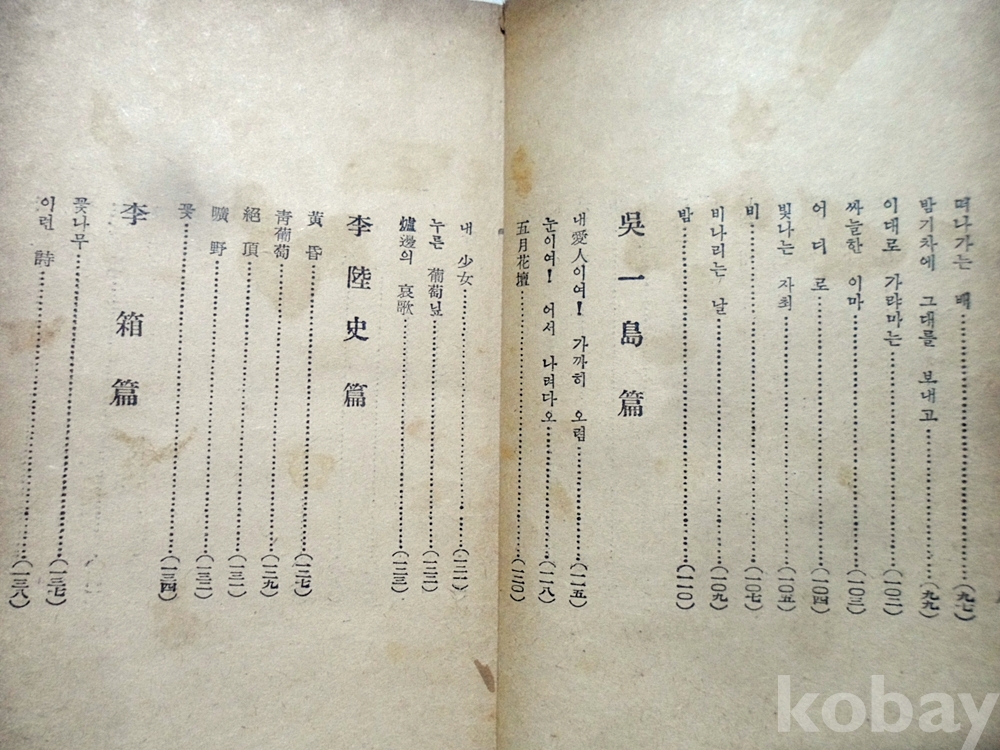 떠나가는 배……(九七)
밤기차에 그대를 보내고……(九九)
이대로 가랴마는……(一〇二)
싸늘한 이마……(一〇三)
어디로……(一〇四)
빛나는 자최……(一〇五)
비……(一〇七)
비나리는 날……(一〇九)
밤……(一一〇)
吳一島篇
내 愛人이여! 가까히 오렴……(一一五)
눈이여! 어서 나려다오……(一一八)
五月花壇……(一二〇)
내 少女……(一二一)
누른 葡萄닢……(一二二)
爐邊의 哀歌……(一二三)
李陸史篇
黃昏……(一二七)
靑葡萄……(一二九)
絕頂……(一三一)
曠野……(一三二)
꽃……(一三四)
李箱篇
꽃나무……(一三七)
이런 詩……(一三八)
kobay